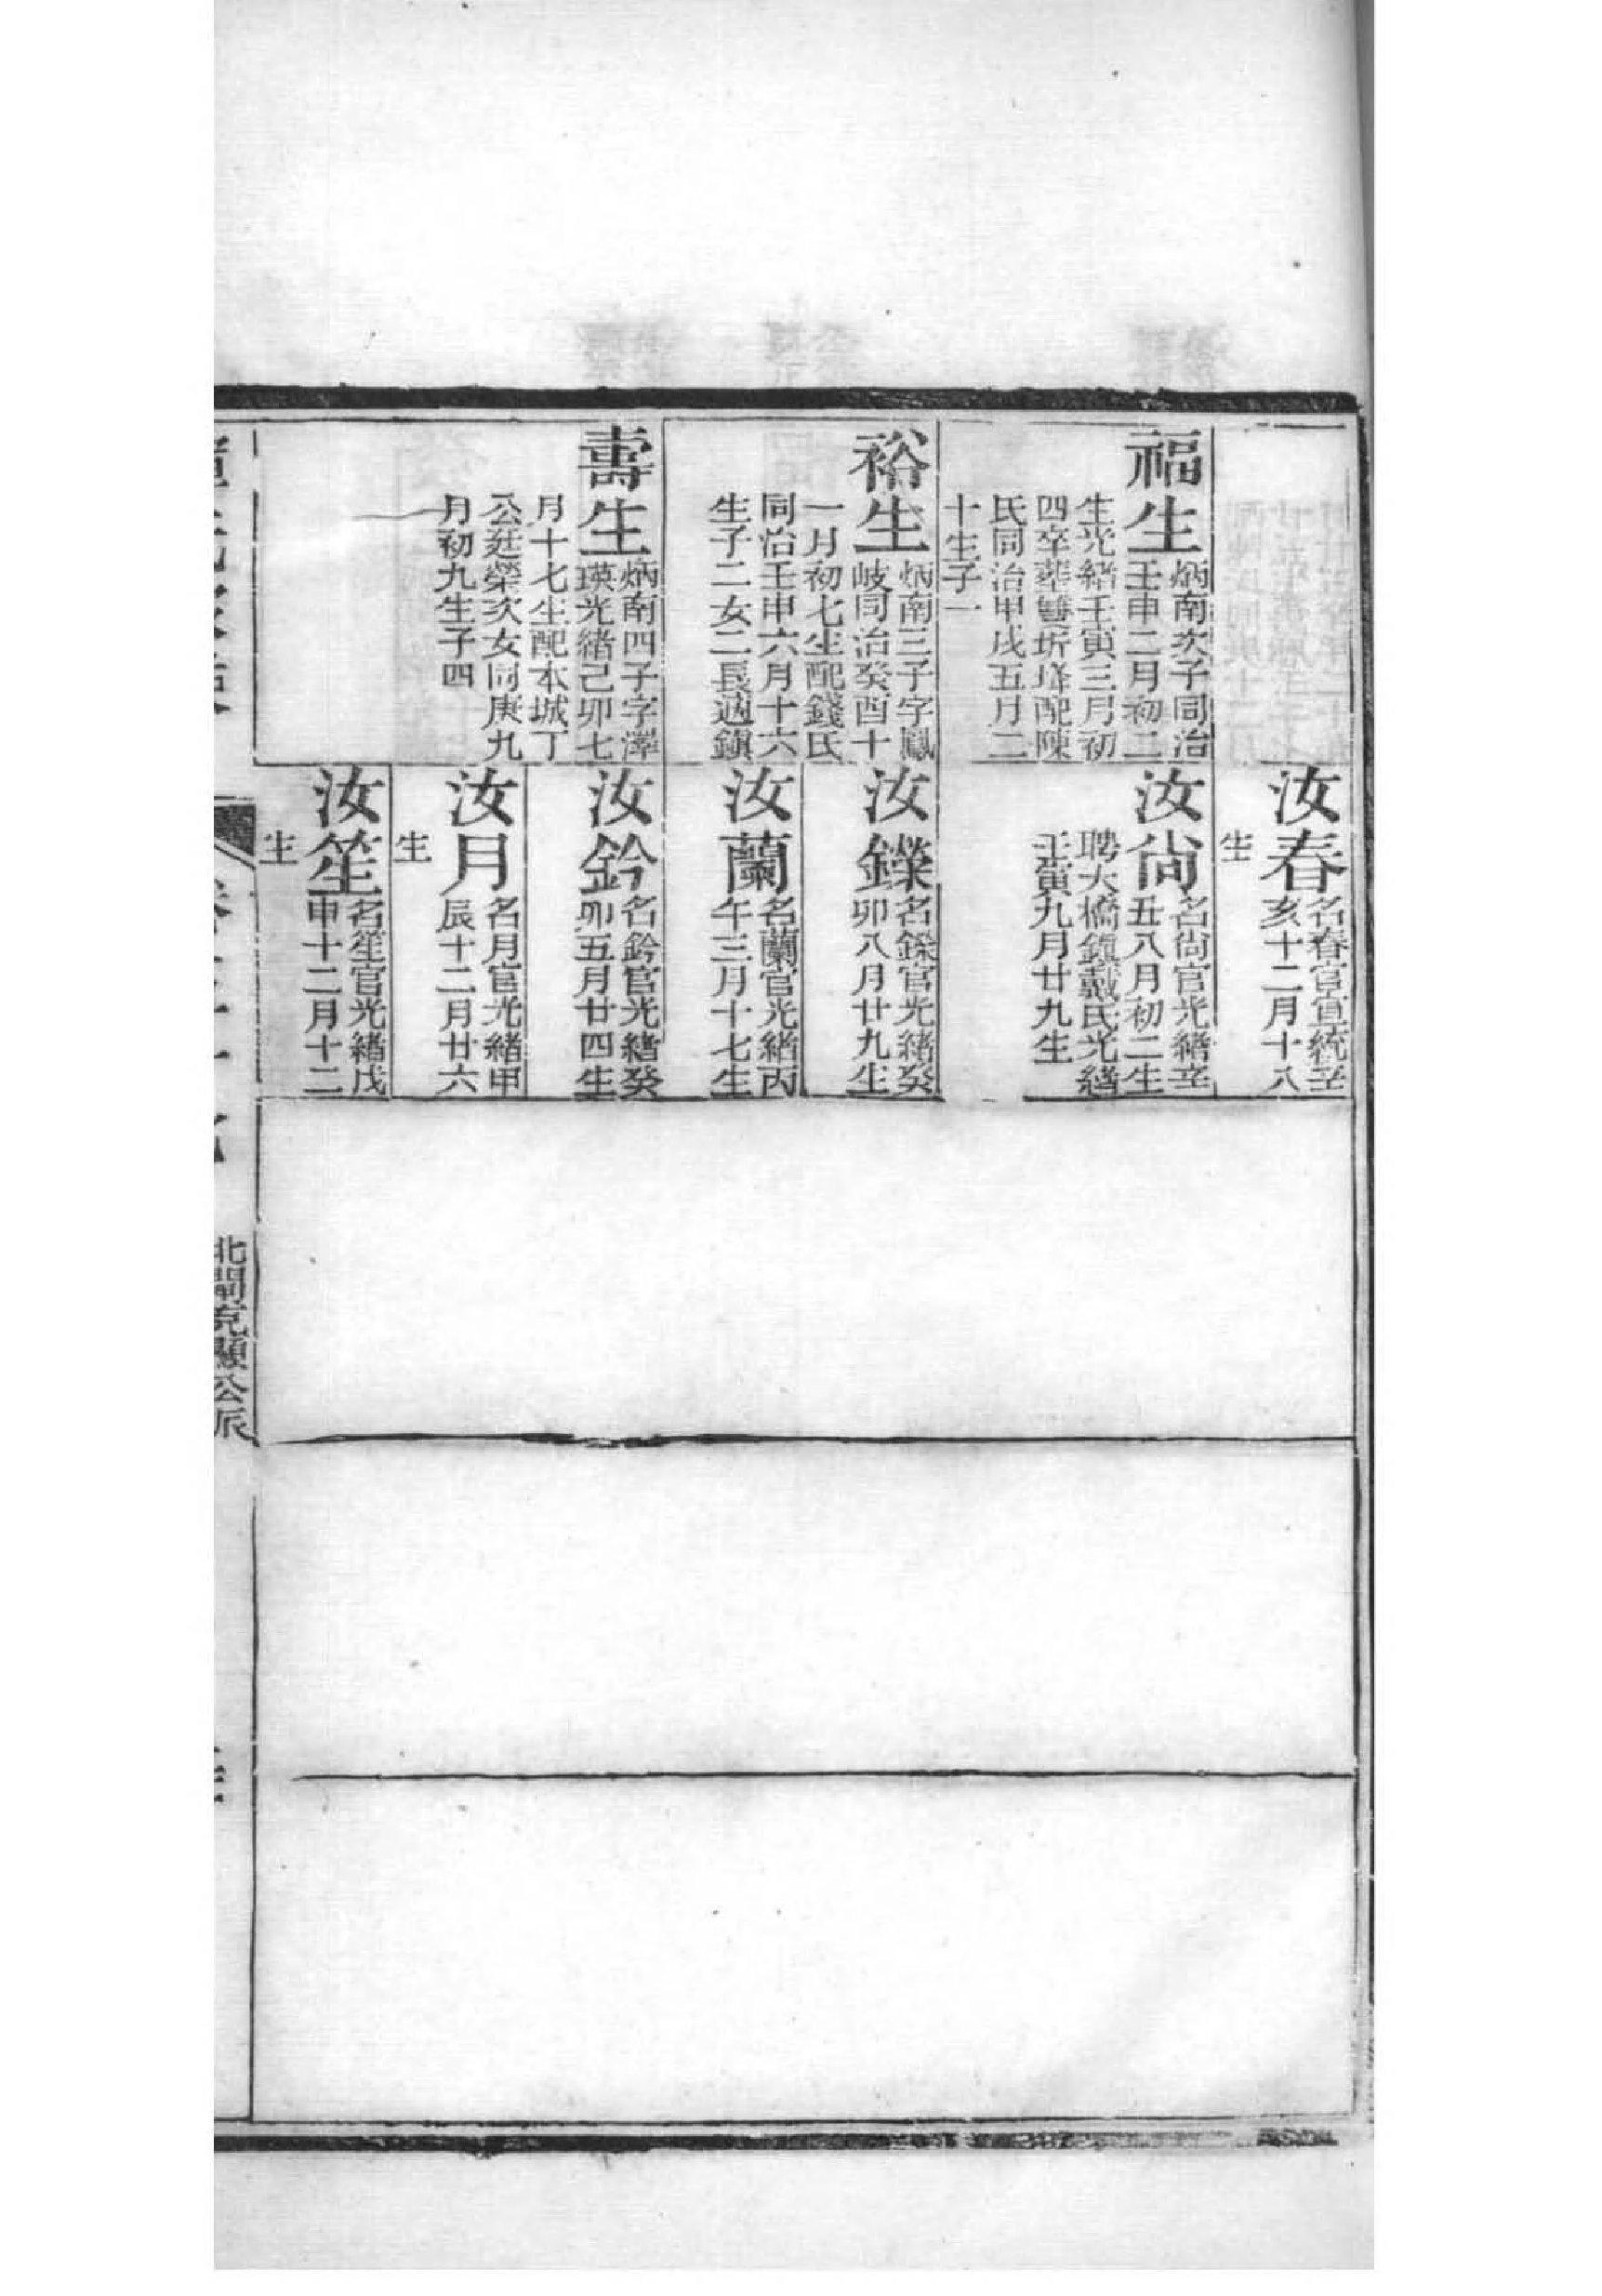 福生
炳南次子同治
壬申二月初二
生光緒壬寅三月初
四卒葬雙圻垾配陳
氏同治甲戌五月二
十生子一
裕生
炳南三子字鳳
岐同治癸酉十
一月初七生配錢氏
同治壬申六月十六
生子二女二長適鎮
壽生
炳南四子字澤
瑛光緒己卯七
月十七生配本城丁
公廷榮次女同庚九
月初九生子四
汝春
名春官宣統辛
亥十二月十八
生
汝尙
名尙官光緒辛
丑八月初二生
聘大橋鎮戴氏光緒
壬寅九月廿九生
汝鑅
名鑅官光緒癸
卯八月廿九生
汝蘭
名蘭官光緒丙
午三月十七生
汝鈐
名鈐官光緒癸
卯五月廿四生
汝月
名月官光緒甲
辰十二月廿六
生
汝笙
名笙官光緒戊
申十二月十二
生
北閘克顯公派